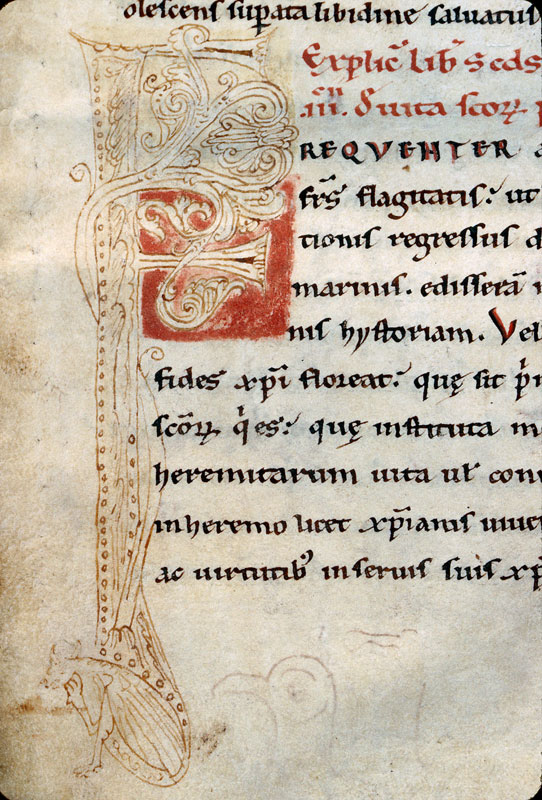 olescens suꝑata libidine saluatus
Explic̄ lib̄ scds
.iii. d̾ uita scoꝝ
FREQVENTER
fr̄s flagitatis: ut
tionis regressus d
marinis. edisserā
nis hystoriam. Vel
fides xp̄i floreat: quę sit
scōꝝ q̇es: quę instituta m
heremitarum uita ul̄ con
in heremo licet xp̄ianis uiue
ac uirtutibꝰ in seruis suis xp̄